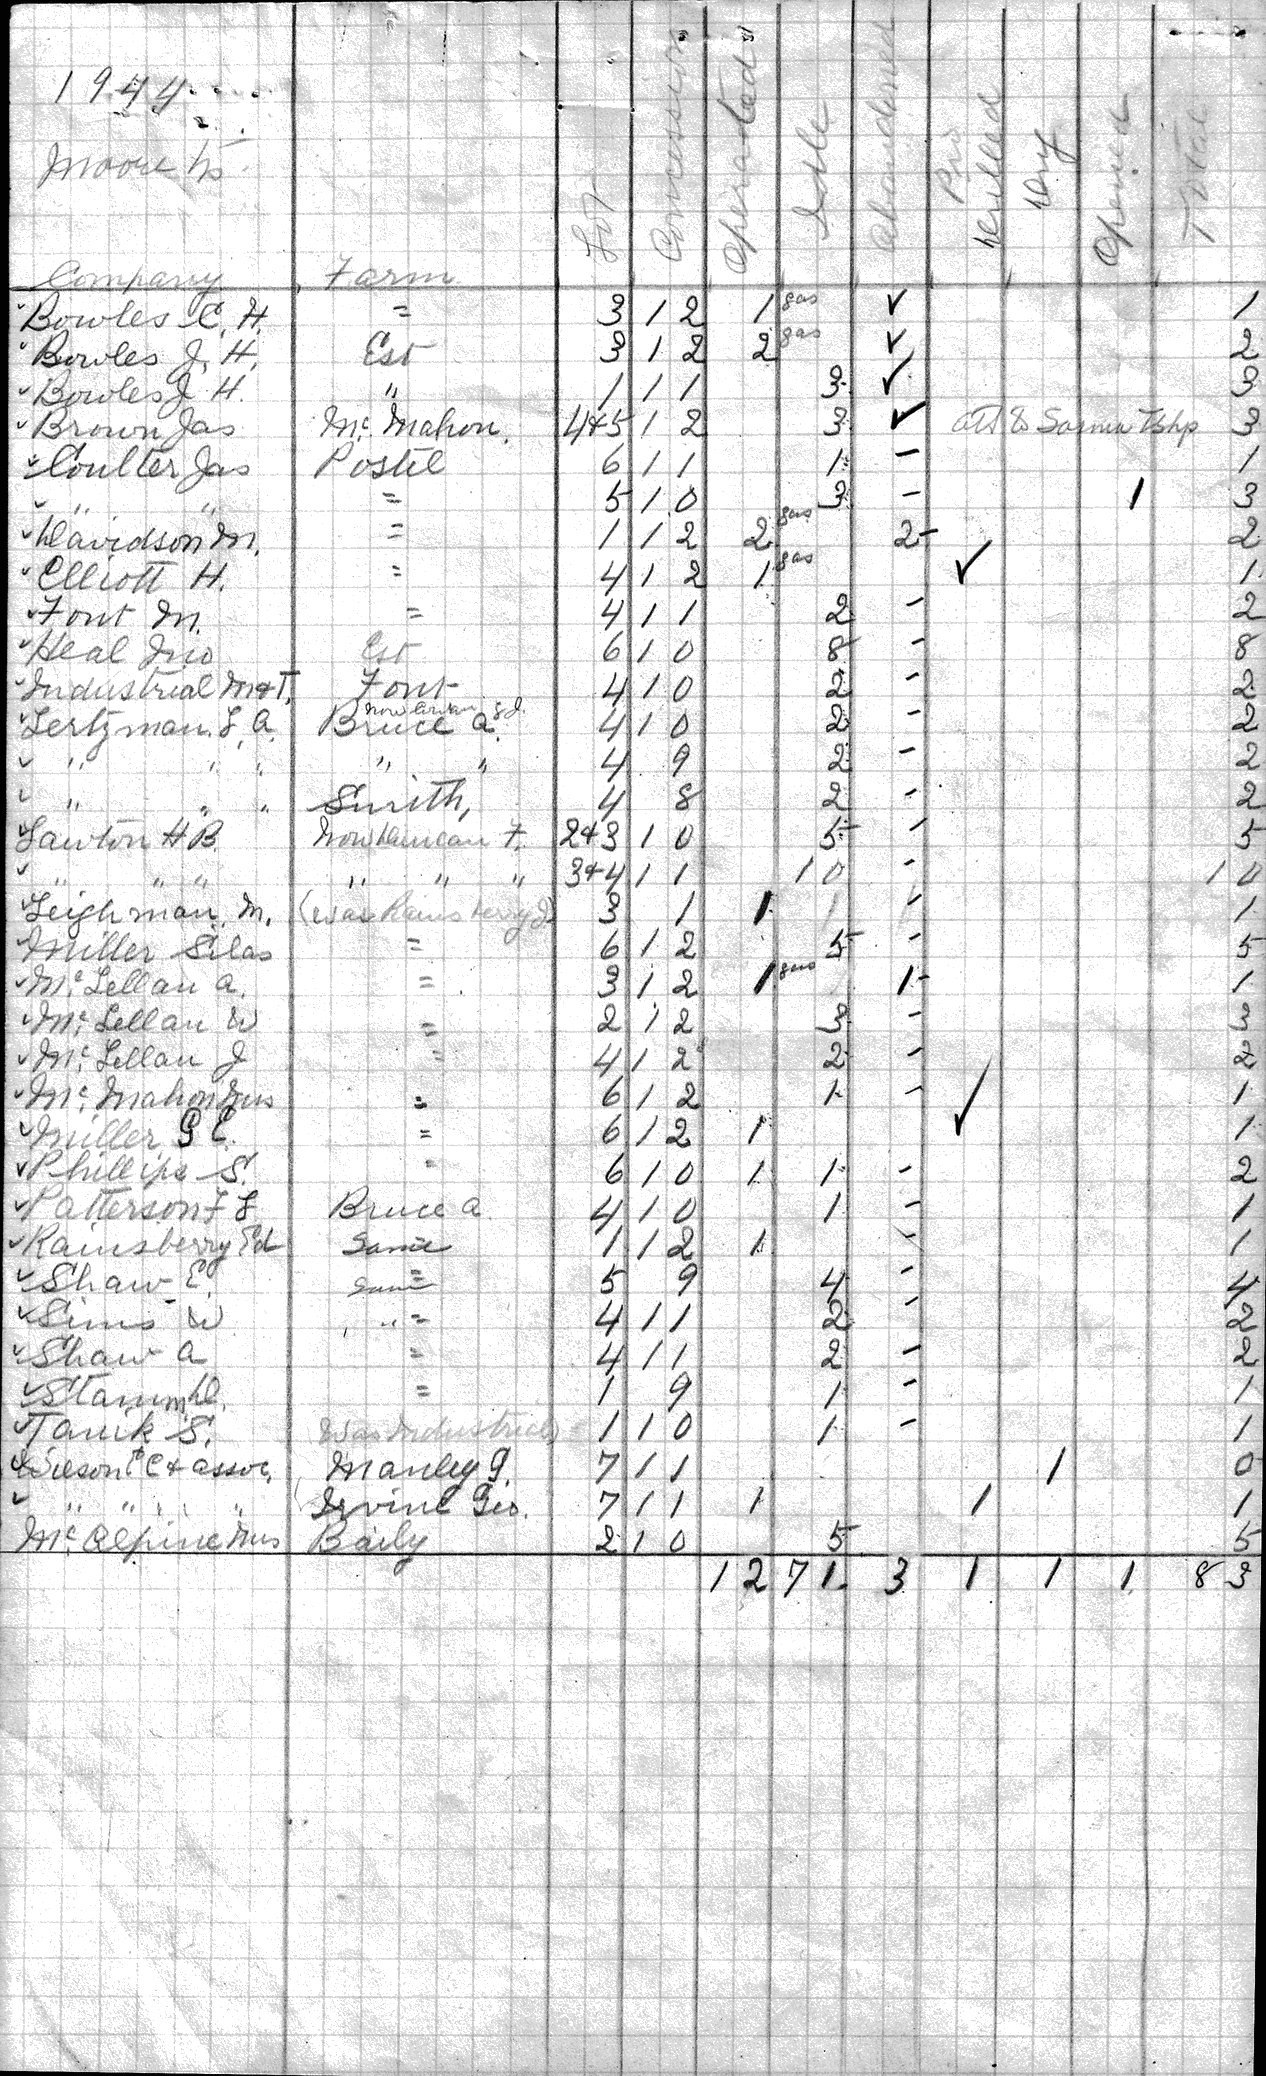 1944
Moore Tp
Company Farm Lot Concession Operated Idle Abandoned Drilled Dry Opened Total
Bowles C. H. = 3 12 1 gas ✓ 1
Bowles J. H. Est 3 12 2 gas ✓ 2
Bowles J H. " 1 11 3 ✓ 3
Brown Jas Mc Mahon. 4+5 12 3 ✓ Sarnia Tshp 3
Coulter Jas Postil 6 11 1 - 1
" " = 5 10 3 - 1 3
Davidson M. = 1 12 2 gas 2- 2
Elliott H. = 4 12 1 gas ✓ 1
Font M. = 4 11 2 - 2
Heal Jno Est 6 10 8 - 8
Industrial M+T. Font 4 10 2 - 2
Lertzman. L. A. Bruce A. 4 10 2 - 2
" " " " " 4 9 2 - 2
" " " Smith, 4 8 2 - 2
Lawton H B. Now Duncan F. 2+3 10 5 - 5
" " " " " " 3+4 11 10 - 10
Leighman, M. (Was Rainsberry J) 3 1 1 1
Miller Silas = 6 12 5 - 5
Mc Lellan A. = 3 12 1 gas 1- 1
Mc Lellan W = 2 12 3 - 3
Mc Lellan J " 4 12 2 - 2
Mc Mahon Mrs = 6 12 1 - 1
Miller G E. = 6 12 1 ✓ 1
Phillips S. = 6 10 1 1 - 2
Patterson F L Bruce A 4 10 1 - 1
Rainsberry Ed Same 1 12 1 - 1
Shaw E. Same = 5 9 4 - 4
Sims W " = 4 11 2 - 2
Shaw A = 4 11 2 - 2
Stamm D. = 1 9 1 - 1
Tanik S. (Was Industrial) 1 10 1 - 1
Wilson E C + assoc, Manley G. 7 11 1 0
" " " " Irvine Geo. 7 11 1 1 1
Mc Alpine Mrs Baily 2 10 5 5
12 71 3 1 1 1 83